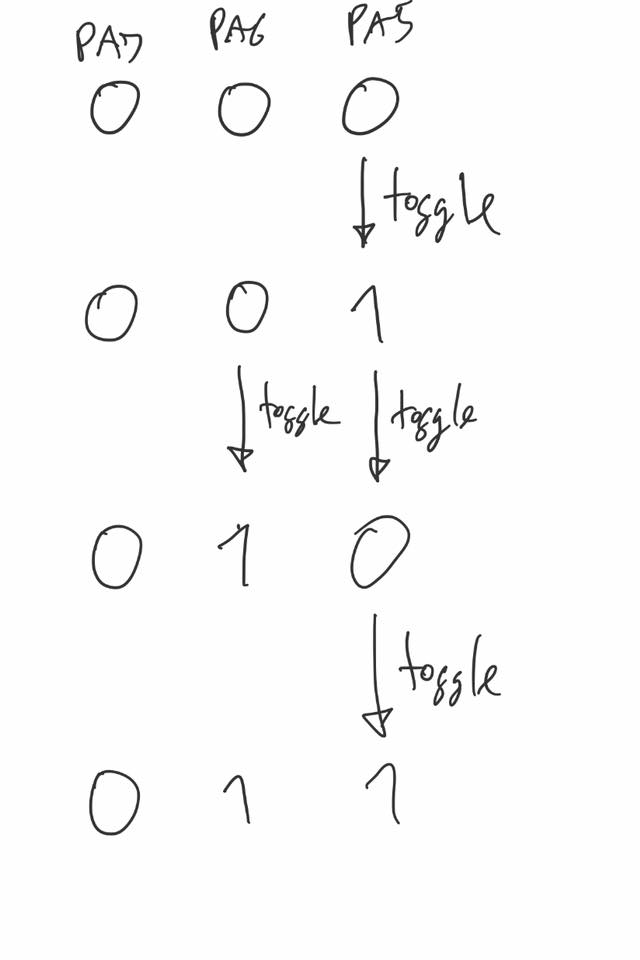 PA7 PA6 PA5
0 0 0
toggle
0 0 1
toggle toggle
0 1 0
toggle
0 1 1